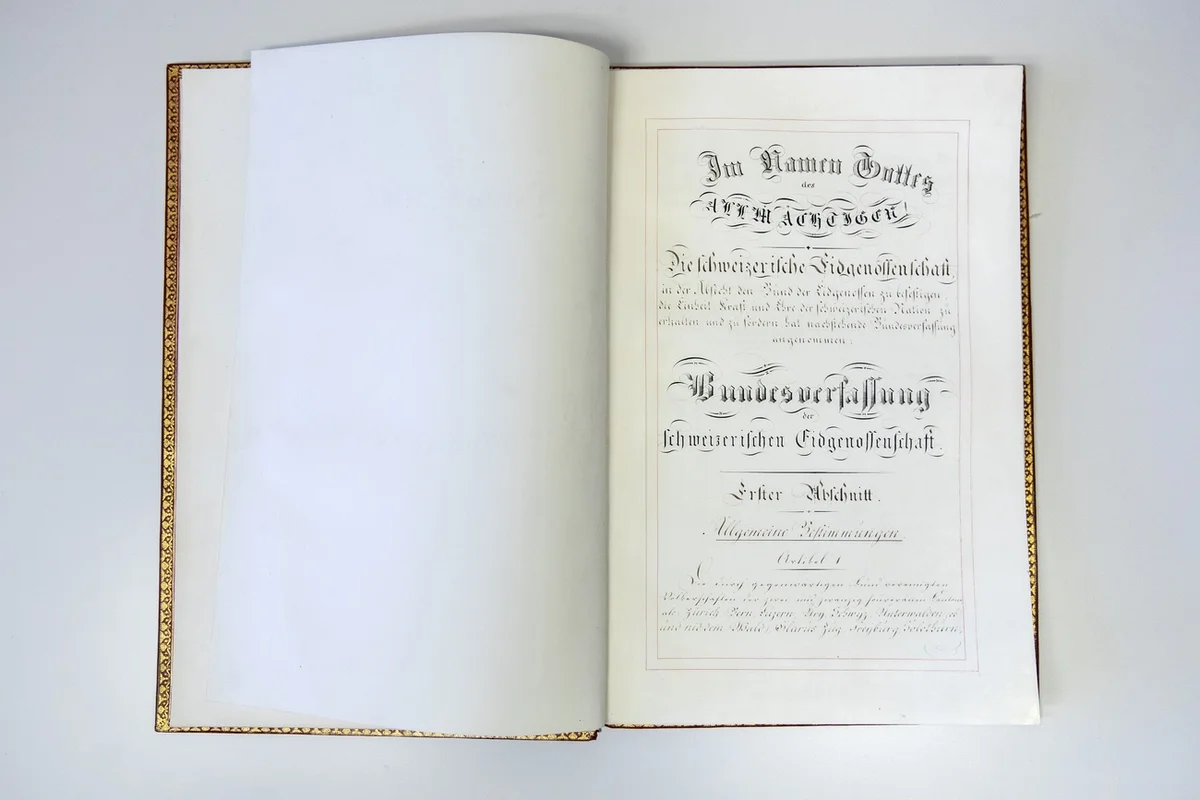 Im Namen Gottes
des
ALLMÄCHTIGEN!
Die schweizerische Eidgenossenschaft,
in der Absicht den Bund der Eidgenossen zu befestigen,
die Einheit Kraft und Ehre der schweizerischen Nation zu
erhalten und zu fördern hat nachstehende Bundesverfassung
angenommen:
Bundesverfassung
der
schweizerischen Eidgenossenschaft.
Erster Abschnitt.
Allgemeine Bestimmungen
Artikel 1
Die durch gegenwärtigen Bund vereinigten
Völkerschaften der zwei und zwanzig souveränen Kantone
als: Zürich Bern Luzern Ury Schwyz, Unterwalden, ob
und nid dem Wald, Glarus Zug Freyburg Solothurn,